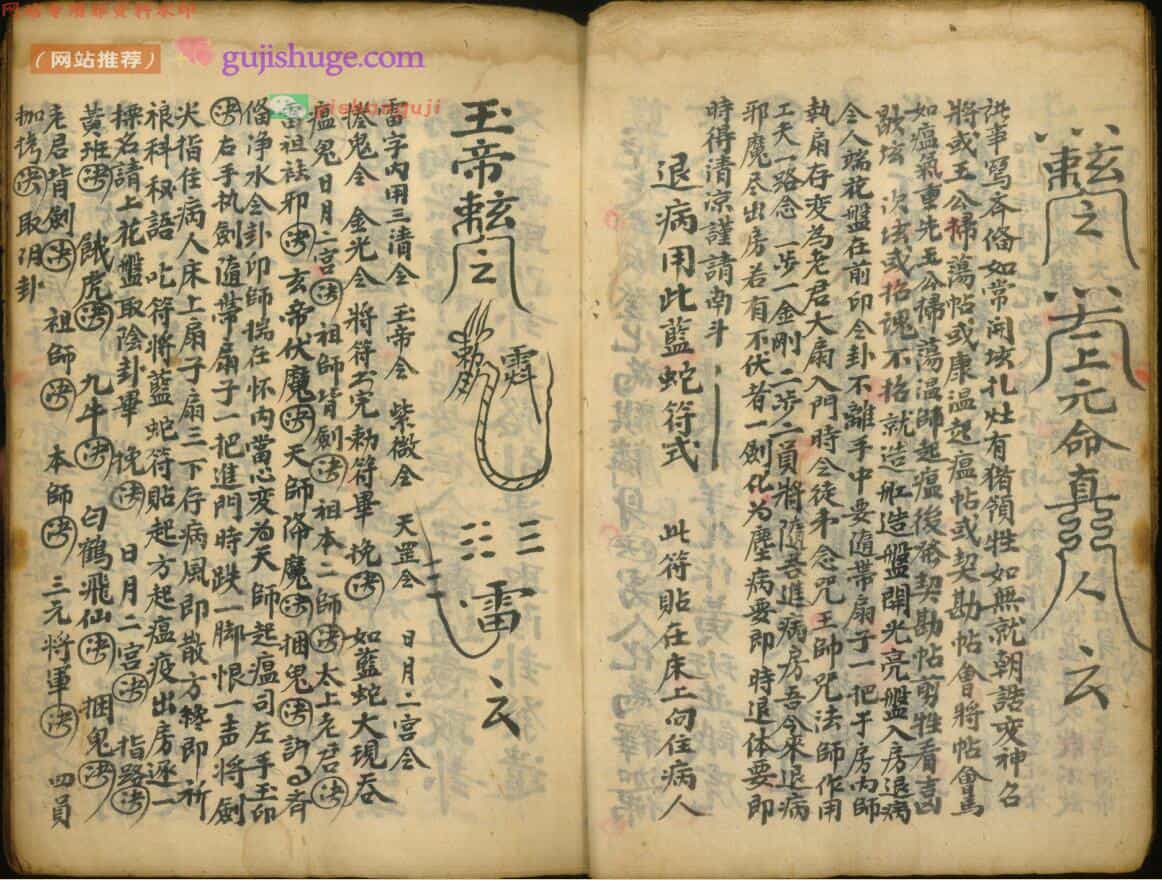 网站专用非资料水印
（网站推荐）
gujishuge.com
上元命真人
諸事寫斉俻如常開坛扎灶有猪領牲如無就朝誥変神召
將或王公掃蕩帖或康温起瘟帖或契勘帖會將帖會馬
如瘟氣重先王公掃蕩温師起瘟後發契勘帖剪牲看吉凶
坛一次坛或拾魂不拾就造舡造盤開光亮盤入房退病
令人端花盤在前印令卦不離手中要隨帶扇子一把于房内師
執扇存変為老君大扇入門時令徒弟念咒王帥咒法師作用
工夫一路念一步一金剛二步二員將隨吾進病房吾今來退病
邪魔尽出房若有不伏者一劍化為塵病要即時退体要即
時得清凉謹請南斗
退病用此藍蛇符式
此符貼在床上向住病人
玉帝
雷
雷字内用三清令 玉帝令 紫微令 天罡令 日月二宮令
鬼令 金光令 將符書完勅符畢 挽决 如藍蛇大現吞
瘟鬼日月二宮决 祖師背劍决 祖本二師决 太上老君决
雷祖祛邪决 玄帝伏魔决 天師降魔决 捆鬼决
俻净水令卦印師揣在怀内當心変為天師起瘟司左手玉印
决右手执劍隨帶扇子一把進門時跌一脚恨一声將劍
尖指住病人床上扇子扇三下存病風即散方終即祈
禄科秘語 叱符將藍蛇符貼起方起瘟疫出房逐一
標名請上花盤取陰卦畢 挽决 日月二宮决 指路决
黄班决 餓虎决 九牛决 白鶴飛仙决 捆鬼决
老君背劍决 祖師决 本師决 三元將軍决 四員
枷拷决 取阴卦